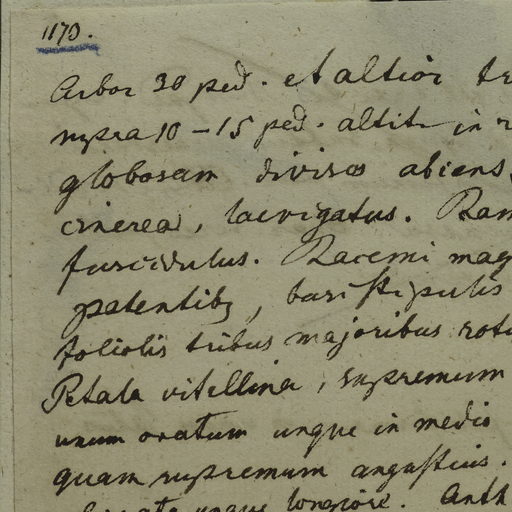 1173.
Arbor 30 ped. et altior tr
supra 10-15 ped. altit in r
globosam divisos abiens
cinerea, laevigatus. Ram
fuscidulus. Racemi mag
patentib, basi stipulis
foliolis tribus majoribus rotu
Petala vitellina, supremum
unum ovatum ungue in medio
quam supremum angustius.
ungue longiore. Anth